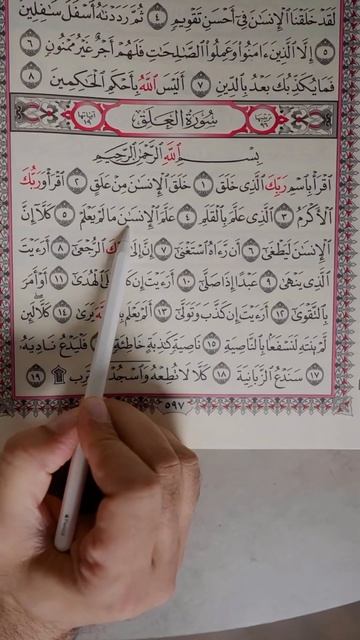 لَقَدْ خَلَقْنَا ٱلْإِنسَٰنَ فِىٓ أَحْسَنِ تَقْوِيمٍ ٤ ثُمَّ رَدَدْنَٰهُ أَسْفَلَ سَٰفِلِينَ
٥ إِلَّا ٱلَّذِينَ ءَامَنُوا۟ وَعَمِلُوا۟ ٱلصَّٰلِحَٰتِ فَلَهُمْ أَجْرٌ غَيْرُ مَمْنُونٍ ٦
فَمَا يُكَذِّبُكَ بَعْدُ بِٱلدِّينِ ٧ أَلَيْسَ ٱللَّهُ بِأَحْكَمِ ٱلْحَٰكِمِينَ ٨
سُورَةُ ٱلْعَلَقِ
بِسْمِ ٱللَّهِ ٱلرَّحْمَٰنِ ٱلرَّحِيمِ
ٱقْرَأْ بِٱسْمِ رَبِّكَ ٱلَّذِى خَلَقَ ١ خَلَقَ ٱلْإِنسَٰنَ مِنْ عَلَقٍ ٢ ٱقْرَأْ وَرَبُّكَ
ٱلْأَكْرَمُ ٣ ٱلَّذِى عَلَّمَ بِٱلْقَلَمِ ٤ عَلَّمَ ٱلْإِنسَٰنَ مَا لَمْ يَعْلَمْ ٥ كَلَّآ إِنَّ
ٱلْإِنسَٰنَ لَيَطْغَىٰٓ ٦ أَن رَّءَاهُ ٱسْتَغْنَىٰٓ ٧ إِنَّ إِلَىٰ ٱلرُّجْعَىٰٓ ٨ أَرَءَيْتَ
ٱلَّذِى يَنْهَىٰ ٩ عَبْدًا إِذَا صَلَّىٰٓ ١٠ أَرَءَيْتَ إِن كَانَ عَلَى ٱلْهُدَىٰٓ ١١ أَوْ أَمَرَ
بِٱلتَّقْوَىٰٓ ١٢ أَرَءَيْتَ إِن كَذَّبَ وَتَوَلَّىٰٓ ١٣ أَلَمْ يَعْلَم يَرَىٰ ١٤ كَلَّا لَئِن
لَّمْ يَنتَهِ لَنَسْفَعًۢا بِٱلنَّاصِيَةِ ١٥ نَاصِيَةٍ كَٰذِبَةٍ خَاطِئَةٍ ١٦ فَلْيَدْعُ نَادِيَهُۥ
١٧ سَنَدْعُ ٱلزَّبَانِيَةَ ١٨ كَلَّا لَا تُطِعْهُ وَٱسْجُدْ ۩ ١٩
٥٩٧